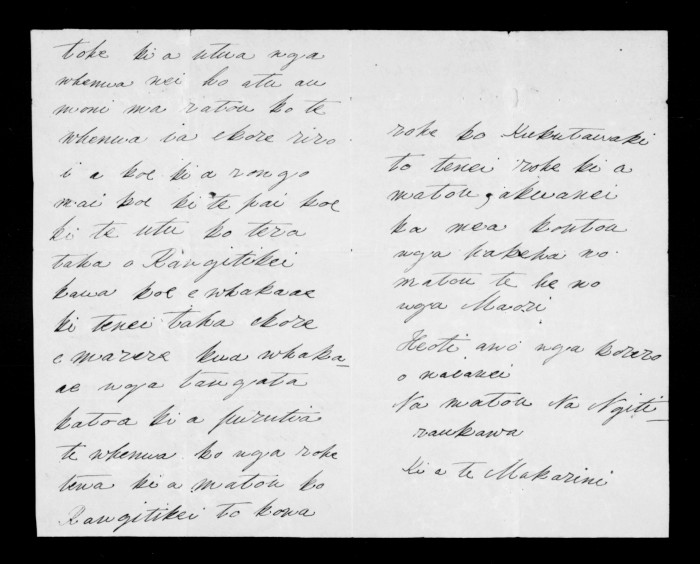 toke ki a utua nga
whenua nei ho atu au
moni ma ratou ko te
whenua ia ekore riro
i a koe ki a rongo
mai koe ki te pai koe
ki te utu ko tera
taha o Rangitikei
kawa koe e whakaae
ki tenei taha ekore
e marere kua whaka-
ae nga tangata
katoa ki a purutia
te whenua ko nga rohe
tena ki a matou ko
Rangitikei to kowa
rohe ko Kukutauaki
to tenei rohe ki a
matou, akuanei
ka mea koutou
nga pakeha no
matou te he no
nga Maori
Heoti ano nga korero
o naianei
Na matou Na Ngiti-
raukawa
Ki a te Makarini